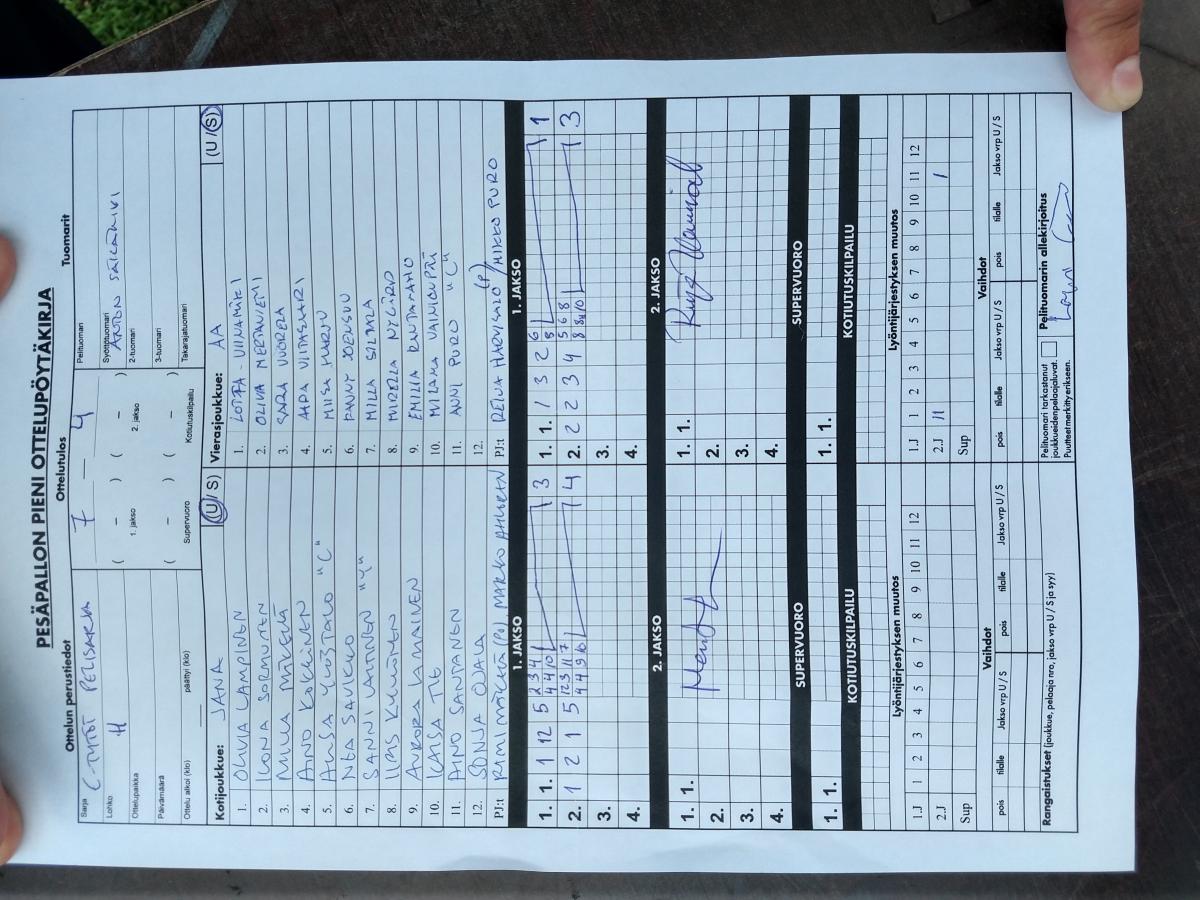 PESÄPALLON PIENI OTTELUPÖYTÄKIRJA
Ottelun perustiedot
Ottelutulos
Tuomarit
Sarja C-TYTÖT
Lohko H
Ottelupaikka
Päivämäärä
Ottelu alkoi (klo)
päättyi (klo)
7 — 4
( – ) ( – )
1. jakso 2. jakso
( – ) ( – )
Supervuoro Kotiutuskilpailu
Pelituomari
Syöttötuomari ANTON
2-tuomari
3-tuomari
Takarajatuomari
Kotijoukkue: JANA (U / S)
1. OLIVIA LAMPINEN
2. ILONA SORMUNEN
3. MILLA MÄKELÄ
4. AINO KOKKINEN
5. YLIÖSTALO "C"
6. NEA SAVIKKO
7. SANNI LAITINEN "V"
8. IIRIS
9. AURORA KAMAINEN
10. KAISA TIE
11. AINO SANTANEN
12. SONJA OJALA
PJ:t RAMI MÄKELÄ (PJ) MARKO AHLSTEN
Vierasjoukkue: AA (U / S)
1. LOTTA VIINAMÄKI
2. OLIVIA MERTANIEMI
3. SARA VUORELA
4. AADA VIITASAARI
5. MIISA HARJU
6. FANNY JOENSUU
7. MILLA SILTALA
8. MIRELLA NYGÅRD
9. EMILIA RANTAMAHO
10. MILANA VAINIONPÄÄ
11. ANNI PURO "C"
12.
PJ:t REIJA HARVISALO (PJ) / MIKKO PURO
1. JAKSO 1. JAKSO
1. 1. 1 12 5 2 3 4 4 4 10 3 1. 1. 1 3 2 6 8 1
2. 1 2 1 5 12 3 11 7 4 4 9 10 4 2. 2 2 3 4 5 6 8 8 8 4 10 3
3. 3.
4. 4.
2. JAKSO 2. JAKSO
1. 1. 1. 1.
2. 2.
3. 3.
4. 4.
SUPERVUORO SUPERVUORO
1. 1. 1. 1.
KOTIUTUSKILPAILU KOTIUTUSKILPAILU
Lyöntijärjestyksen muutos Lyöntijärjestyksen muutos
1.J 1 2 3 4 5 6 7 8 9 10 11 12 1.J 1 2 3 4 5 6 7 8 9 10 11 12
2.J 2.J 11 1
Sup Sup
Vaihdot Vaihdot
pois tilalle Jakso vrp U / S pois tilalle Jakso vrp U / S pois tilalle Jakso vrp U / S pois tilalle Jakso vrp U / S
Rangaistukset (joukkue, pelaaja nro, jakso vrp U / S ja syy)
Pelituomari tarkastanut
joukkueiden pelaajaluvat.
Puutteet merkitty erikseen.
Pelituomarin allekirjoitus